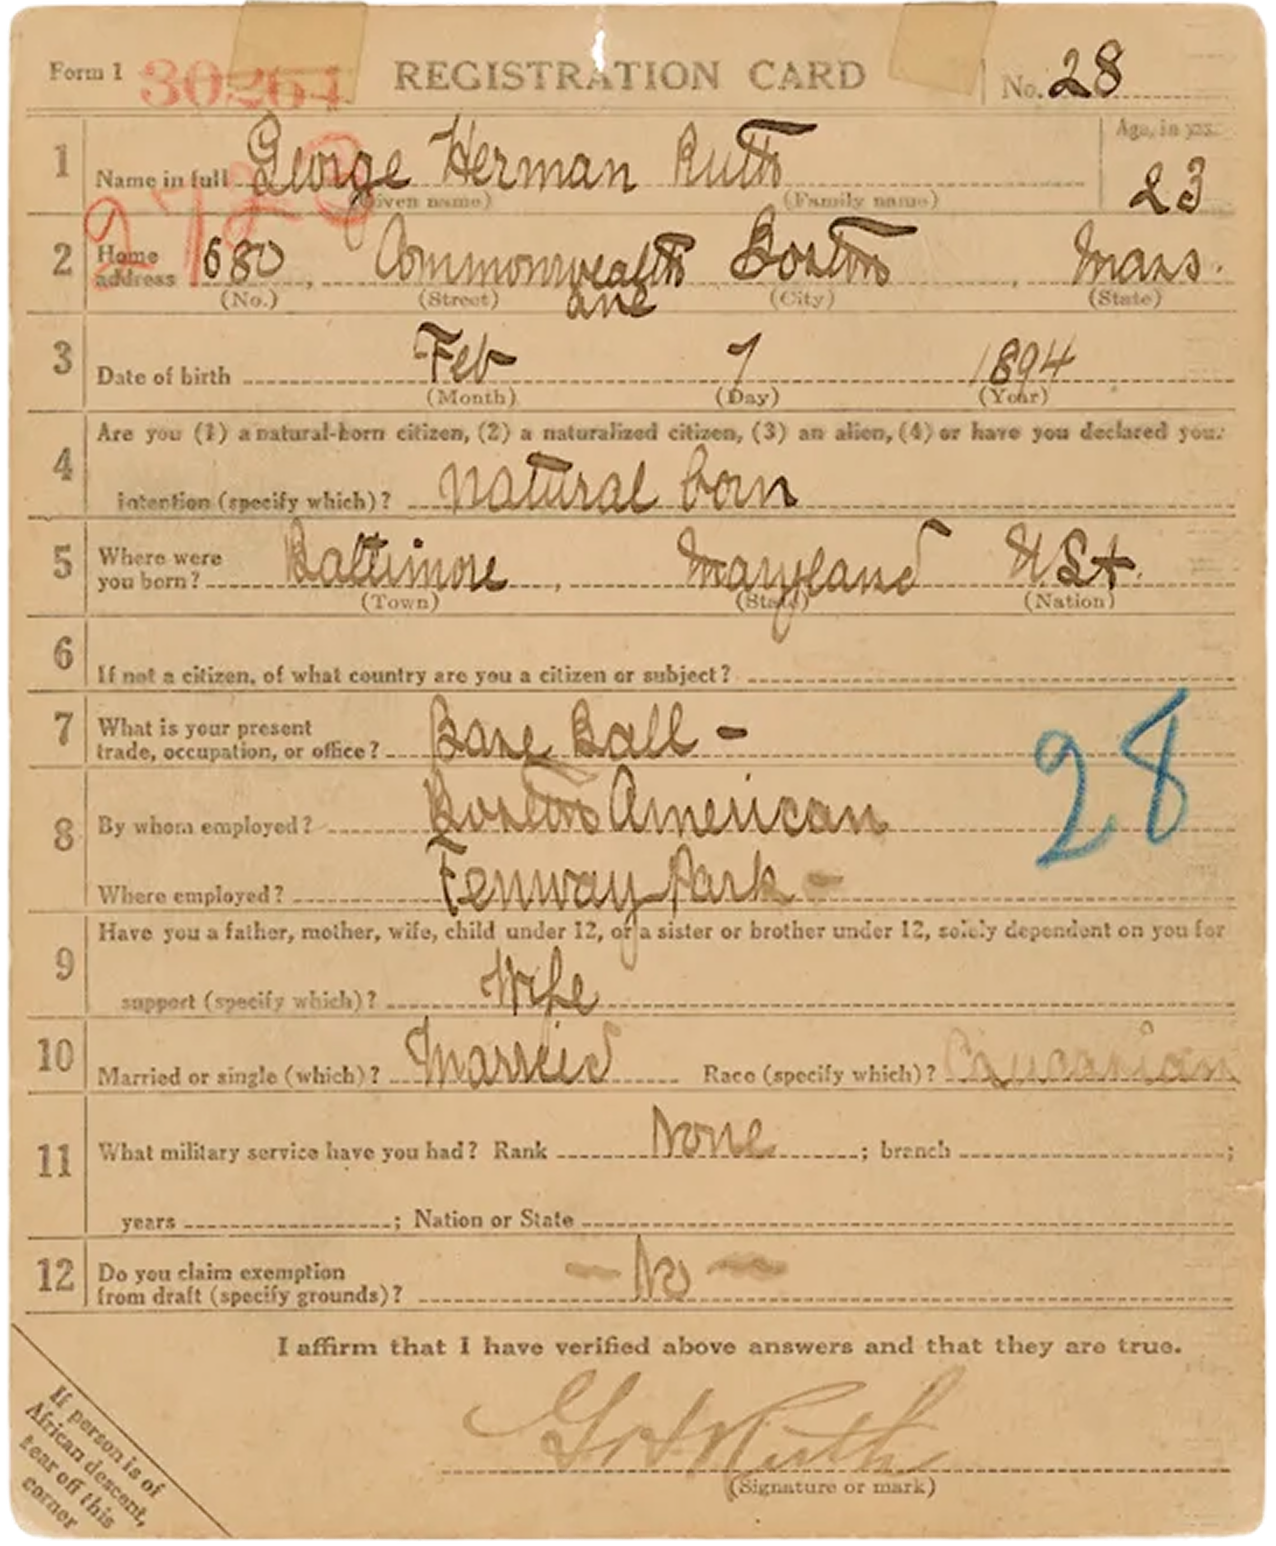 Form 1 30264 REGISTRATION CARD No. 28
1 Name in full George Herman Ruth Age, in yrs. 23
(Given name) (Family name)
2723
2 Home address 680 , Commonwealth ave Boston , Mass.
(No.) (Street) (City) (State)
3 Date of birth Feb 7 1894
(Month) (Day) (Year)
4 Are you (1) a natural-born citizen, (2) a naturalized citizen, (3) an alien, (4) or have you declared your
intention (specify which)? natural born
5 Where were you born? Baltimore , Maryland USA.
(Town) (State) (Nation)
6 If not a citizen, of what country are you a citizen or subject?
7 What is your present
trade, occupation, or office? Base Ball -
28
8 By whom employed? Boston American
Where employed? Fenway Park -
9 Have you a father, mother, wife, child under 12, or a sister or brother under 12, solely dependent on you for
support (specify which)? Wife
10 Married or single (which)? Married Race (specify which)? Caucasian
11 What military service have you had? Rank None ; branch ;
years ; Nation or State
12 Do you claim exemption
from draft (specify grounds)? — No —
I affirm that I have verified above answers and that they are true.
G H Ruth
(Signature or mark)
If person is of
African descent,
tear off this
corner